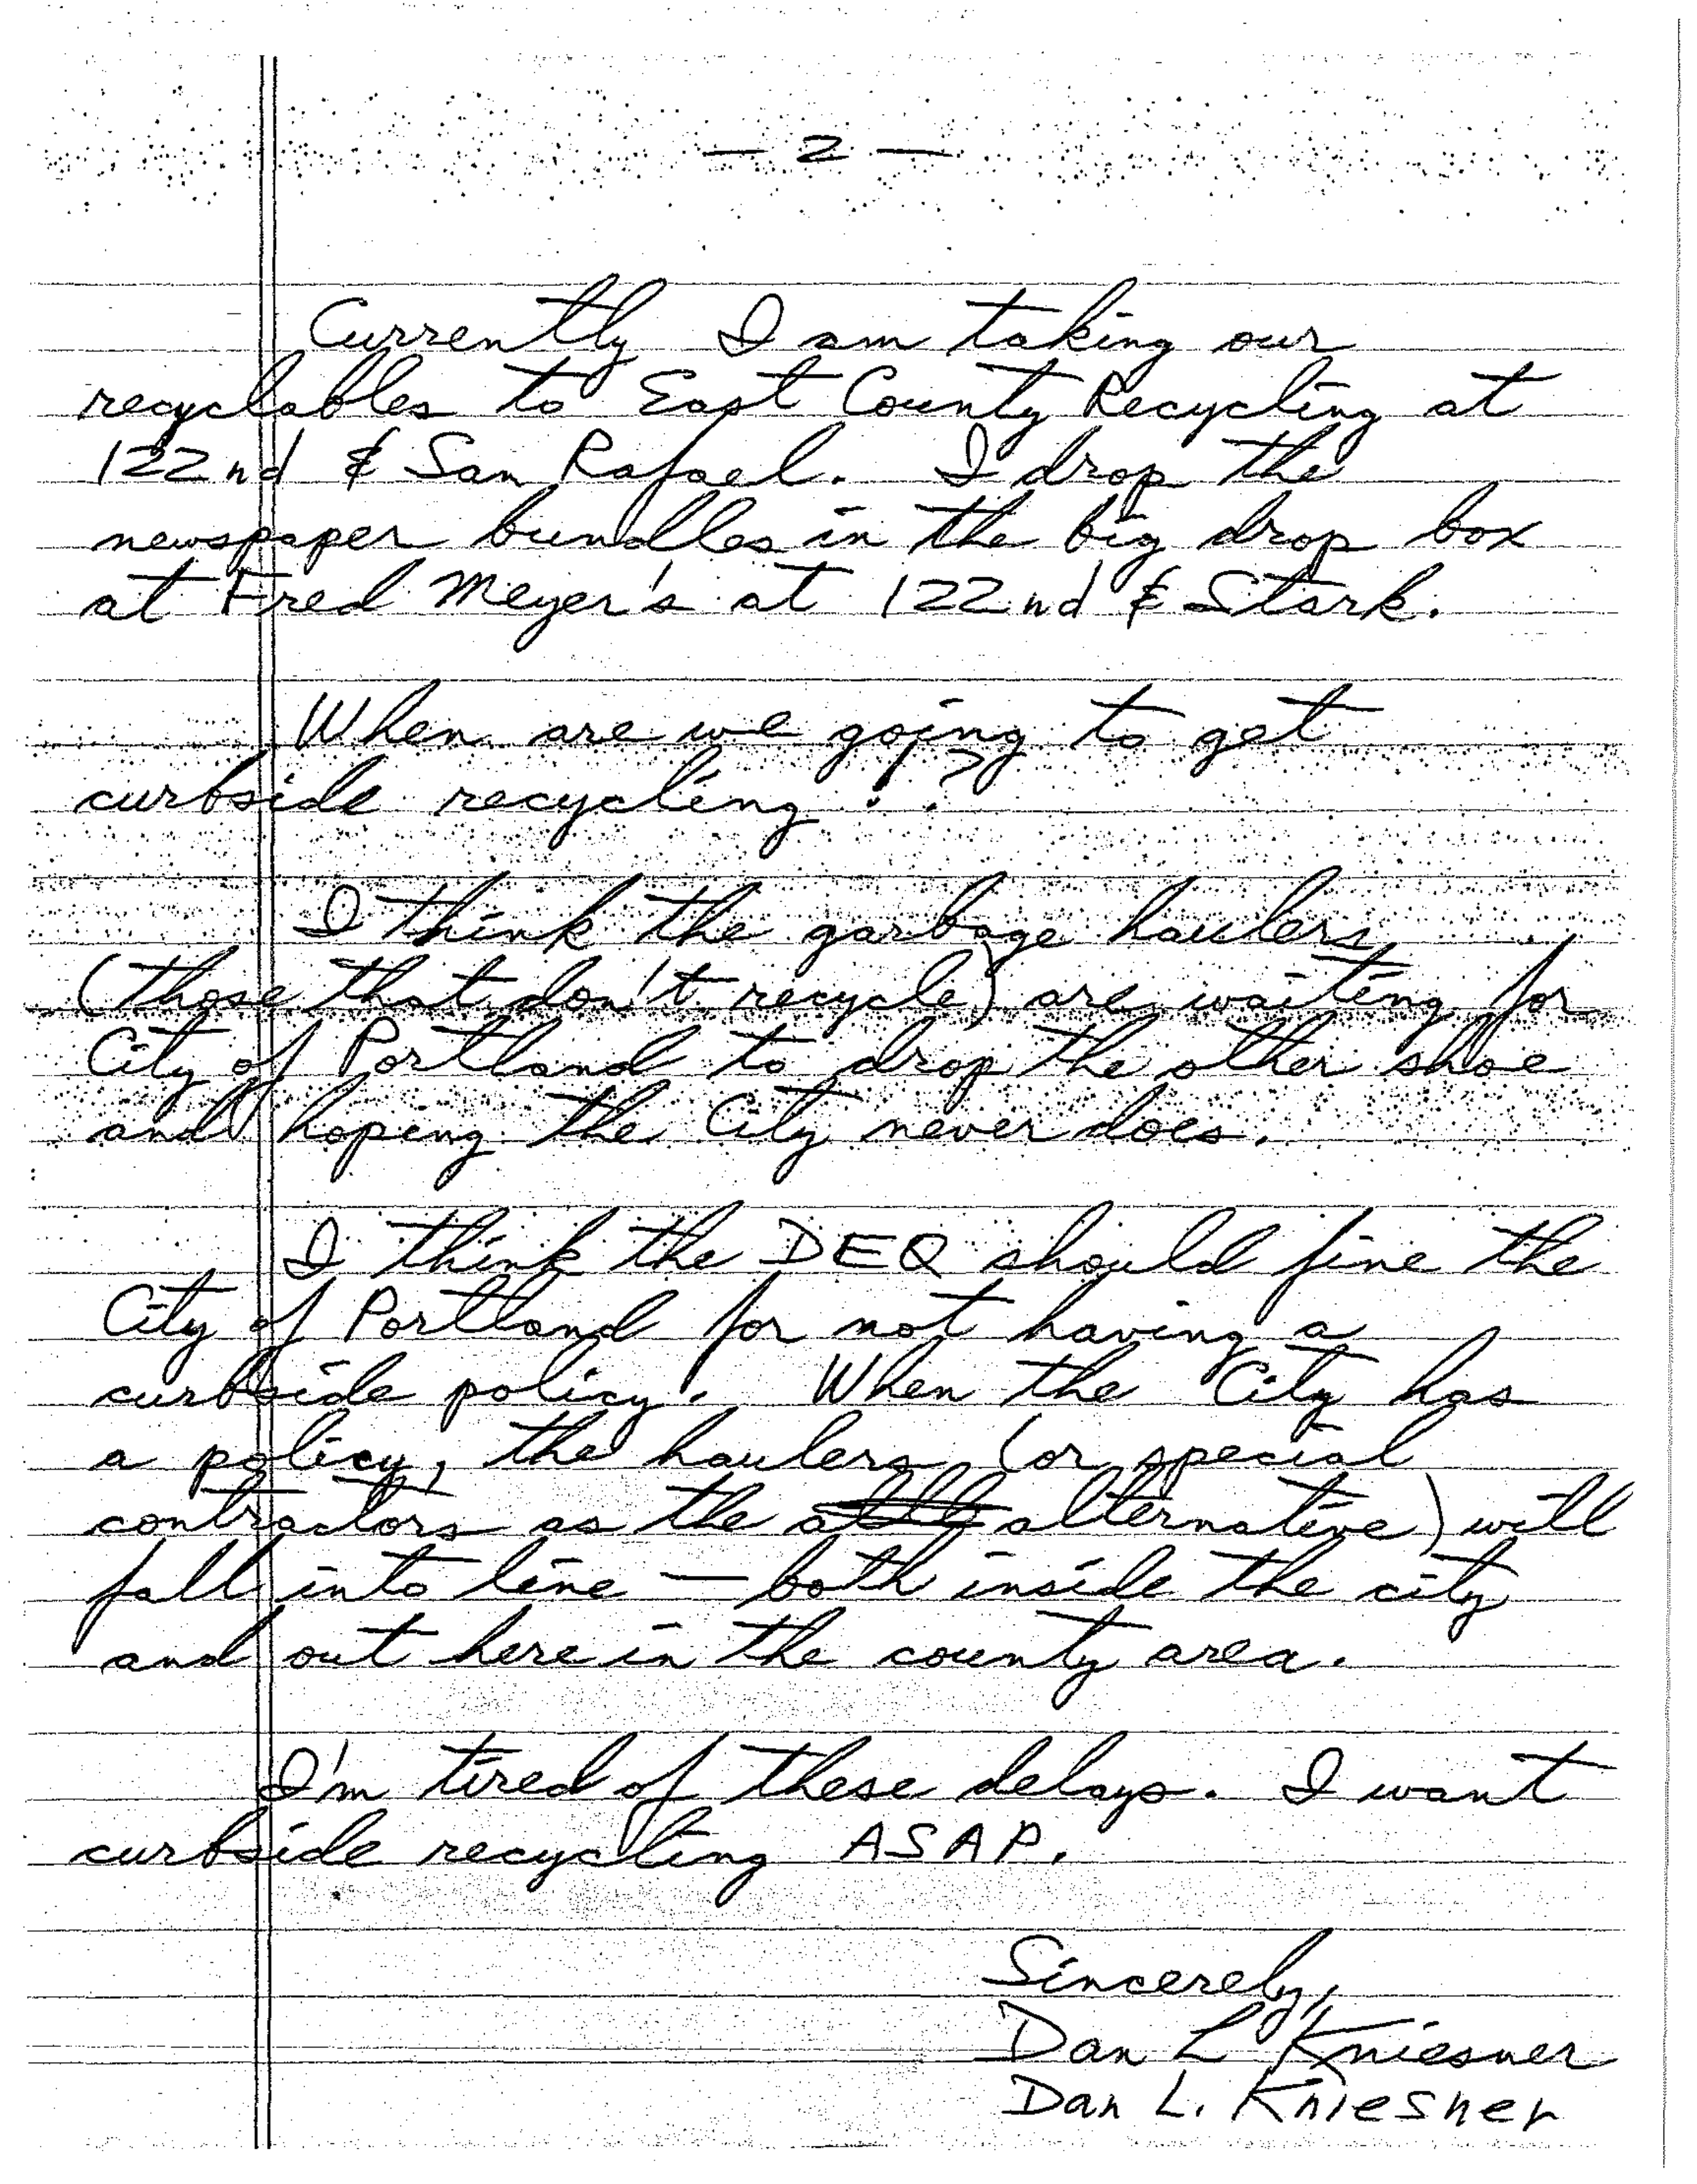 — 2 —
Currently I am taking our
recyclables to East County Recycling at
122nd & San Rafael. I drop the
newspaper bundles in the big drop box
at Fred Meyer's at 122nd & Stark.
When are we going to get
curbside recycling!?
I think the garbage haulers
(those that don't recycle) are waiting for
City of Portland to drop the other shoe
and hoping the City never does.
I think the DEQ should fine the
City of Portland for not having a
curbside policy. When the City has
a policy, the haulers (or special
contractors as the alternative) will
fall into line — both inside the city
and out here in the county area.
I'm tired of these delays. I want
curbside recycling ASAP.
Sincerely,
Dan L Kniesner
Dan L. Kniesner